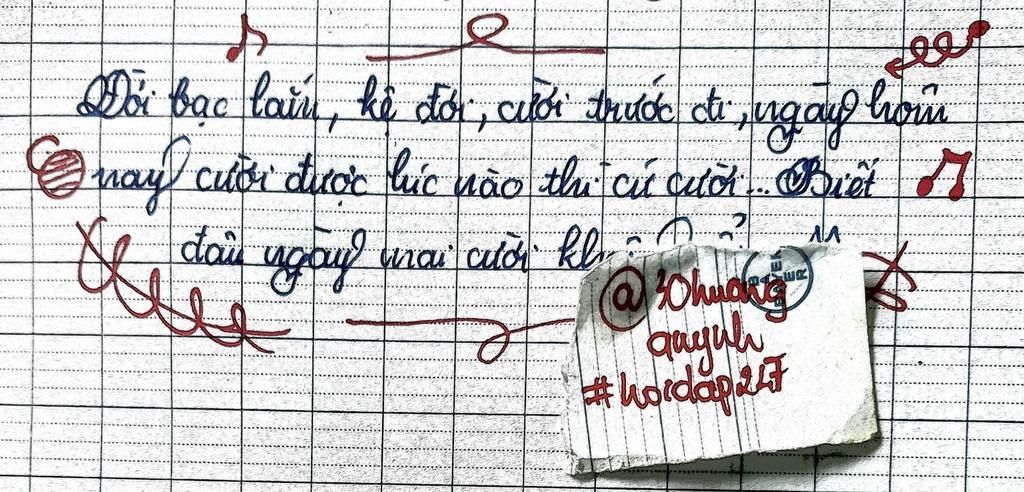 Đời bạc lắm, kệ đời, cười trước đi, ngày hôm
nay cười được lúc nào thì cứ cười... Biết
đâu ngày mai cười
BAYER
BAYER
@30huong
quynh
#hoidap247